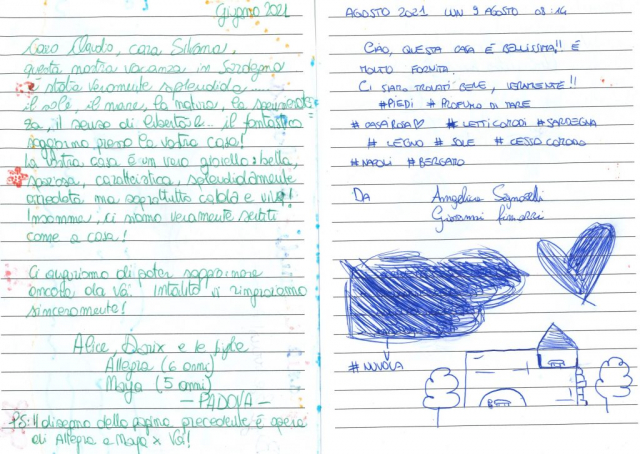 Giugno 2021
Caro Claudio, cara Silvana,
questa nostra vacanza in Sardegna
è stata veramente splendida.....
il sole, il mare, la natura, la
za, il senso di libertà... il fantastico
soggiorno presso la vostra casa!
La vostra casa è un vero gioiello: bella,
spaziosa, caratteristica, splendidamente
arredata ma soprattutto calda e viva!
Insomma, ci siamo veramente sentiti
come a casa!
Ci auguriamo di poter soggiornare
ancora da voi. Intanto vi ringraziamo
sinceramente!
Alice, e le figlie
Allegra (6 anni)
Maya (5 anni)
- PADOVA -
PS: Il disegno della pagina precedente è opera
di Allegra e Maya x Voi!
AGOSTO 2021 LUN 9 AGOSTO 08:14
CIAO, QUESTA CASA È BELLISSIMA!! È
MOLTO FORNITA.
CI SIAMO TROVATI BENE, VERAMENTE!!
#PIEDI #PROFUMO DI MARE
#CASA ROSA♡ #LETTI COMODI #SARDEGNA
#LEGNO #SOLE #CESSO COMODO
#NAPOLI #BERGAMO
DA Angelica
Giovanni
#NUVOLA